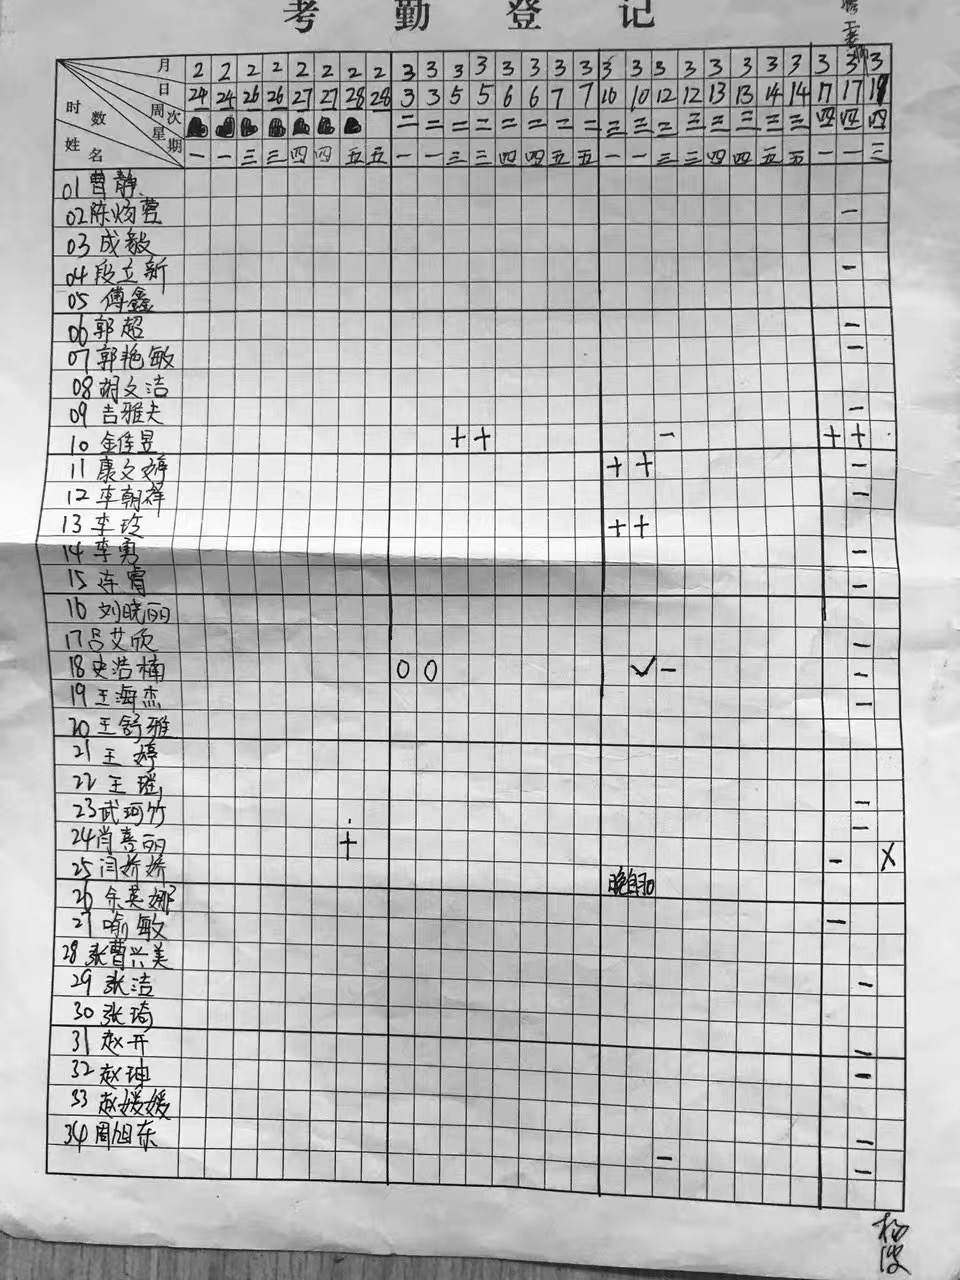 考勤登记
月 2 2 2 2 2 2 2 2 3 3 3 3 3 3 3 3 3 3 3 3 3 3 3 3 3 3 3
日 24 24 26 26 27 27 28 28 3 3 5 5 6 6 7 7 10 10 12 12 13 13 14 14 17 17 19
时数 周次 二 二 二 二 二 二 二 二 三 三 三 三 三 三 三 三 四 四 四
星期 一 一 三 三 四 四 五 五 一 一 三 三 四 四 五 五 一 一 三 三 四 四 五 五 一 一 三
姓名
01 曹静
02 陈炀萱 —
03 成毅
04 段立新 —
05 傅鑫
06 郭超 —
07 郭艳敏 —
08 胡文洁
09 吉雅夫 —
10 金佳昱 + + — + +
11 康文婷 + + —
12 李朝祥 —
13 李玲 + +
14 李勇 —
15 连霄 —
16 刘晓丽
17 吕艾欣 —
18 史浩楠 0 0 ✓ — —
19 王海杰 —
20 王舒雅
21 王婷
22 王瑶
23 武珂竹 —
24 肖喜丽 + —
25 闫娇娇 — X
26 余英娜
27 喻敏 —
28 张曹兴美
29 张洁 —
30 张琦
31 赵开 —
32 赵珅 —
33 赵媛媛
34 周旭东 —
— —